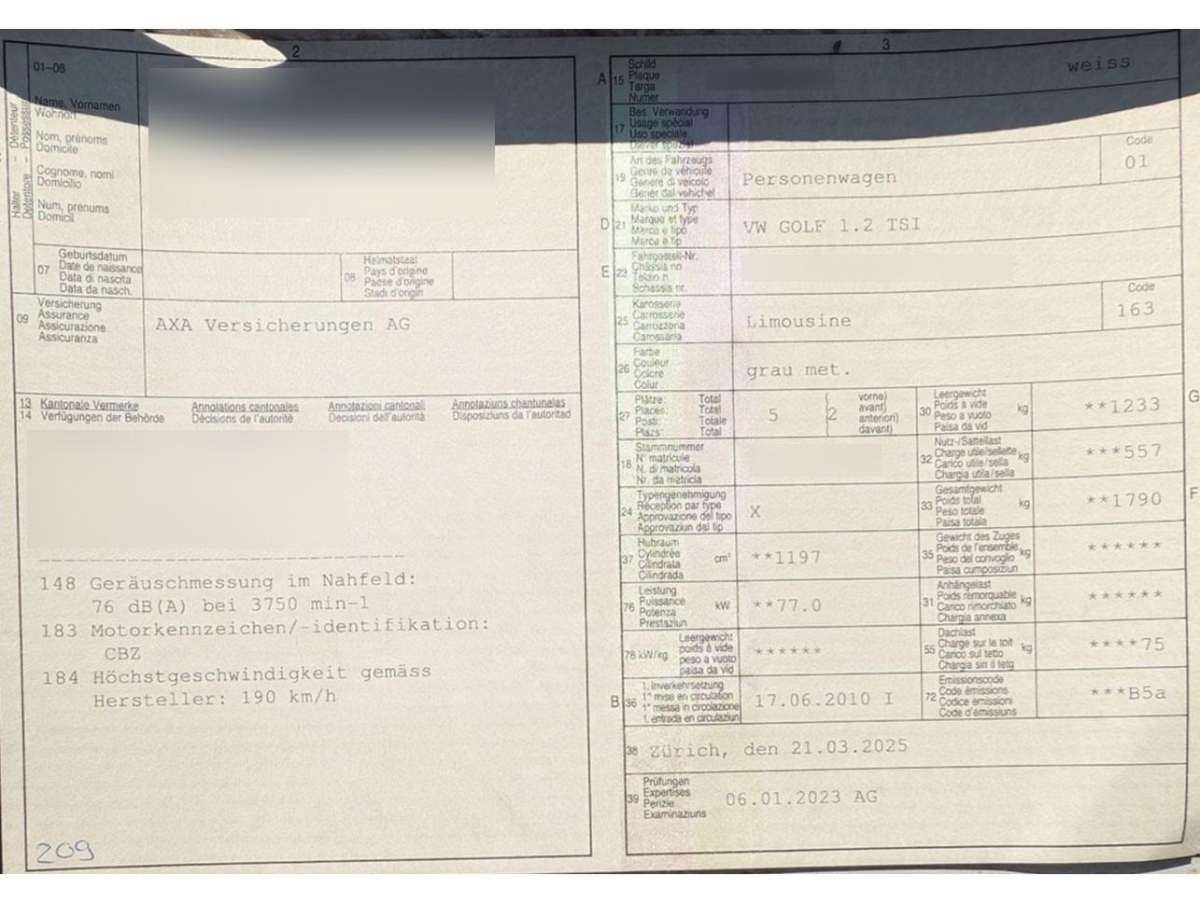 2
01-06
Halter - Détenteur
Detentore - Possessur
Name, Vornamen
Wohnort
Nom, prénoms
Domicile
Cognome, nomi
Domicilio
Num, prenums
Domicil
07
Geburtsdatum
Date de naissance
Data di nascita
Data da nasch.
08
Heimatstaat
Pays d'origine
Paese d'origine
Stadi d'origin
09
Versicherung
Assurance
Assicurazione
Assicuranza
AXA Versicherungen AG
13 Kantonale Vermerke Annotations cantonales Annotazioni cantonali Annotaziuns chantunalas
14 Verfügungen der Behörde Décisions de l'autorité Decisioni dell'autorità Disposiziuns da l'autoritad
148 Geräuschmessung im Nahfeld:
76 dB(A) bei 3750 min-1
183 Motorkennzeichen/-identifikation:
CBZ
184 Höchstgeschwindigkeit gemäss
Hersteller: 190 km/h
209
3
A 15
Schild
Plaque
Targa
Numer
weiss
17
Bes. Verwendung
Usage spécial
Uso speciale
Diever spezial
19
Art des Fahrzeugs
Genre de véhicule
Genere di veicolo
Gener dal vehichel
Personenwagen
Code
01
D 21
Marke und Typ
Marque et type
Marca e tipo
Marca e tip
VW GOLF 1.2 TSI
E 23
Fahrgestell-Nr.
Châssis no
Telaio n.
Schassis nr.
25
Karosserie
Carrosserie
Carrozzeria
Carossaria
Limousine
Code
163
26
Farbe
Couleur
Colore
Colur
grau met.
27
Plätze: Total
Places: Total
Posti: Totale
Plazs: Total
5
(2
vorne)
avant)
anteriori)
davant)
30
Leergewicht
Poids à vide
Peso a vuoto
Paisa da vid
kg
**1233
G
18
Stammnummer
N° matricule
N. di matricola
Nr. da matricla
32
Nutz-/Sattellast
Charge utile/sellette
Carico utile/sella
Chargia utila/sella
kg
***557
24
Typengenehmigung
Réception par type
Approvazione del tipo
Approvaziun dal tip
X
33
Gesamtgewicht
Poids total
Peso totale
Paisa totala
kg
**1790
F
37
Hubraum
Cylindrée
Cilindrata
Cilindrada
cm³
**1197
35
Gewicht des Zuges
Poids de l'ensemble
Peso del convoglio
Paisa cumposiziun
kg
******
76
Leistung
Puissance
Potenza
Prestaziun
kW
**77.0
31
Anhängelast
Poids remorquable
Carico rimorchiato
Chargia annexa
kg
******
78 kW/kg
Leergewicht
poids à vide
peso a vuoto
paisa da vid
******
55
Dachlast
Charge sur le toit
Carico sul tetto
Chargia sin il tetg
kg
****75
B 36
1. Inverkehrsetzung
1re mise en circulation
1a messa in circolazione
1. entrada en circulaziun
17.06.2010 I
72
Emissionscode
Code émissions
Codice emissioni
Code d'emissiuns
***B5a
38 Zürich, den 21.03.2025
39
Prüfungen
Expertises
Perizie
Examinaziuns
06.01.2023 AG